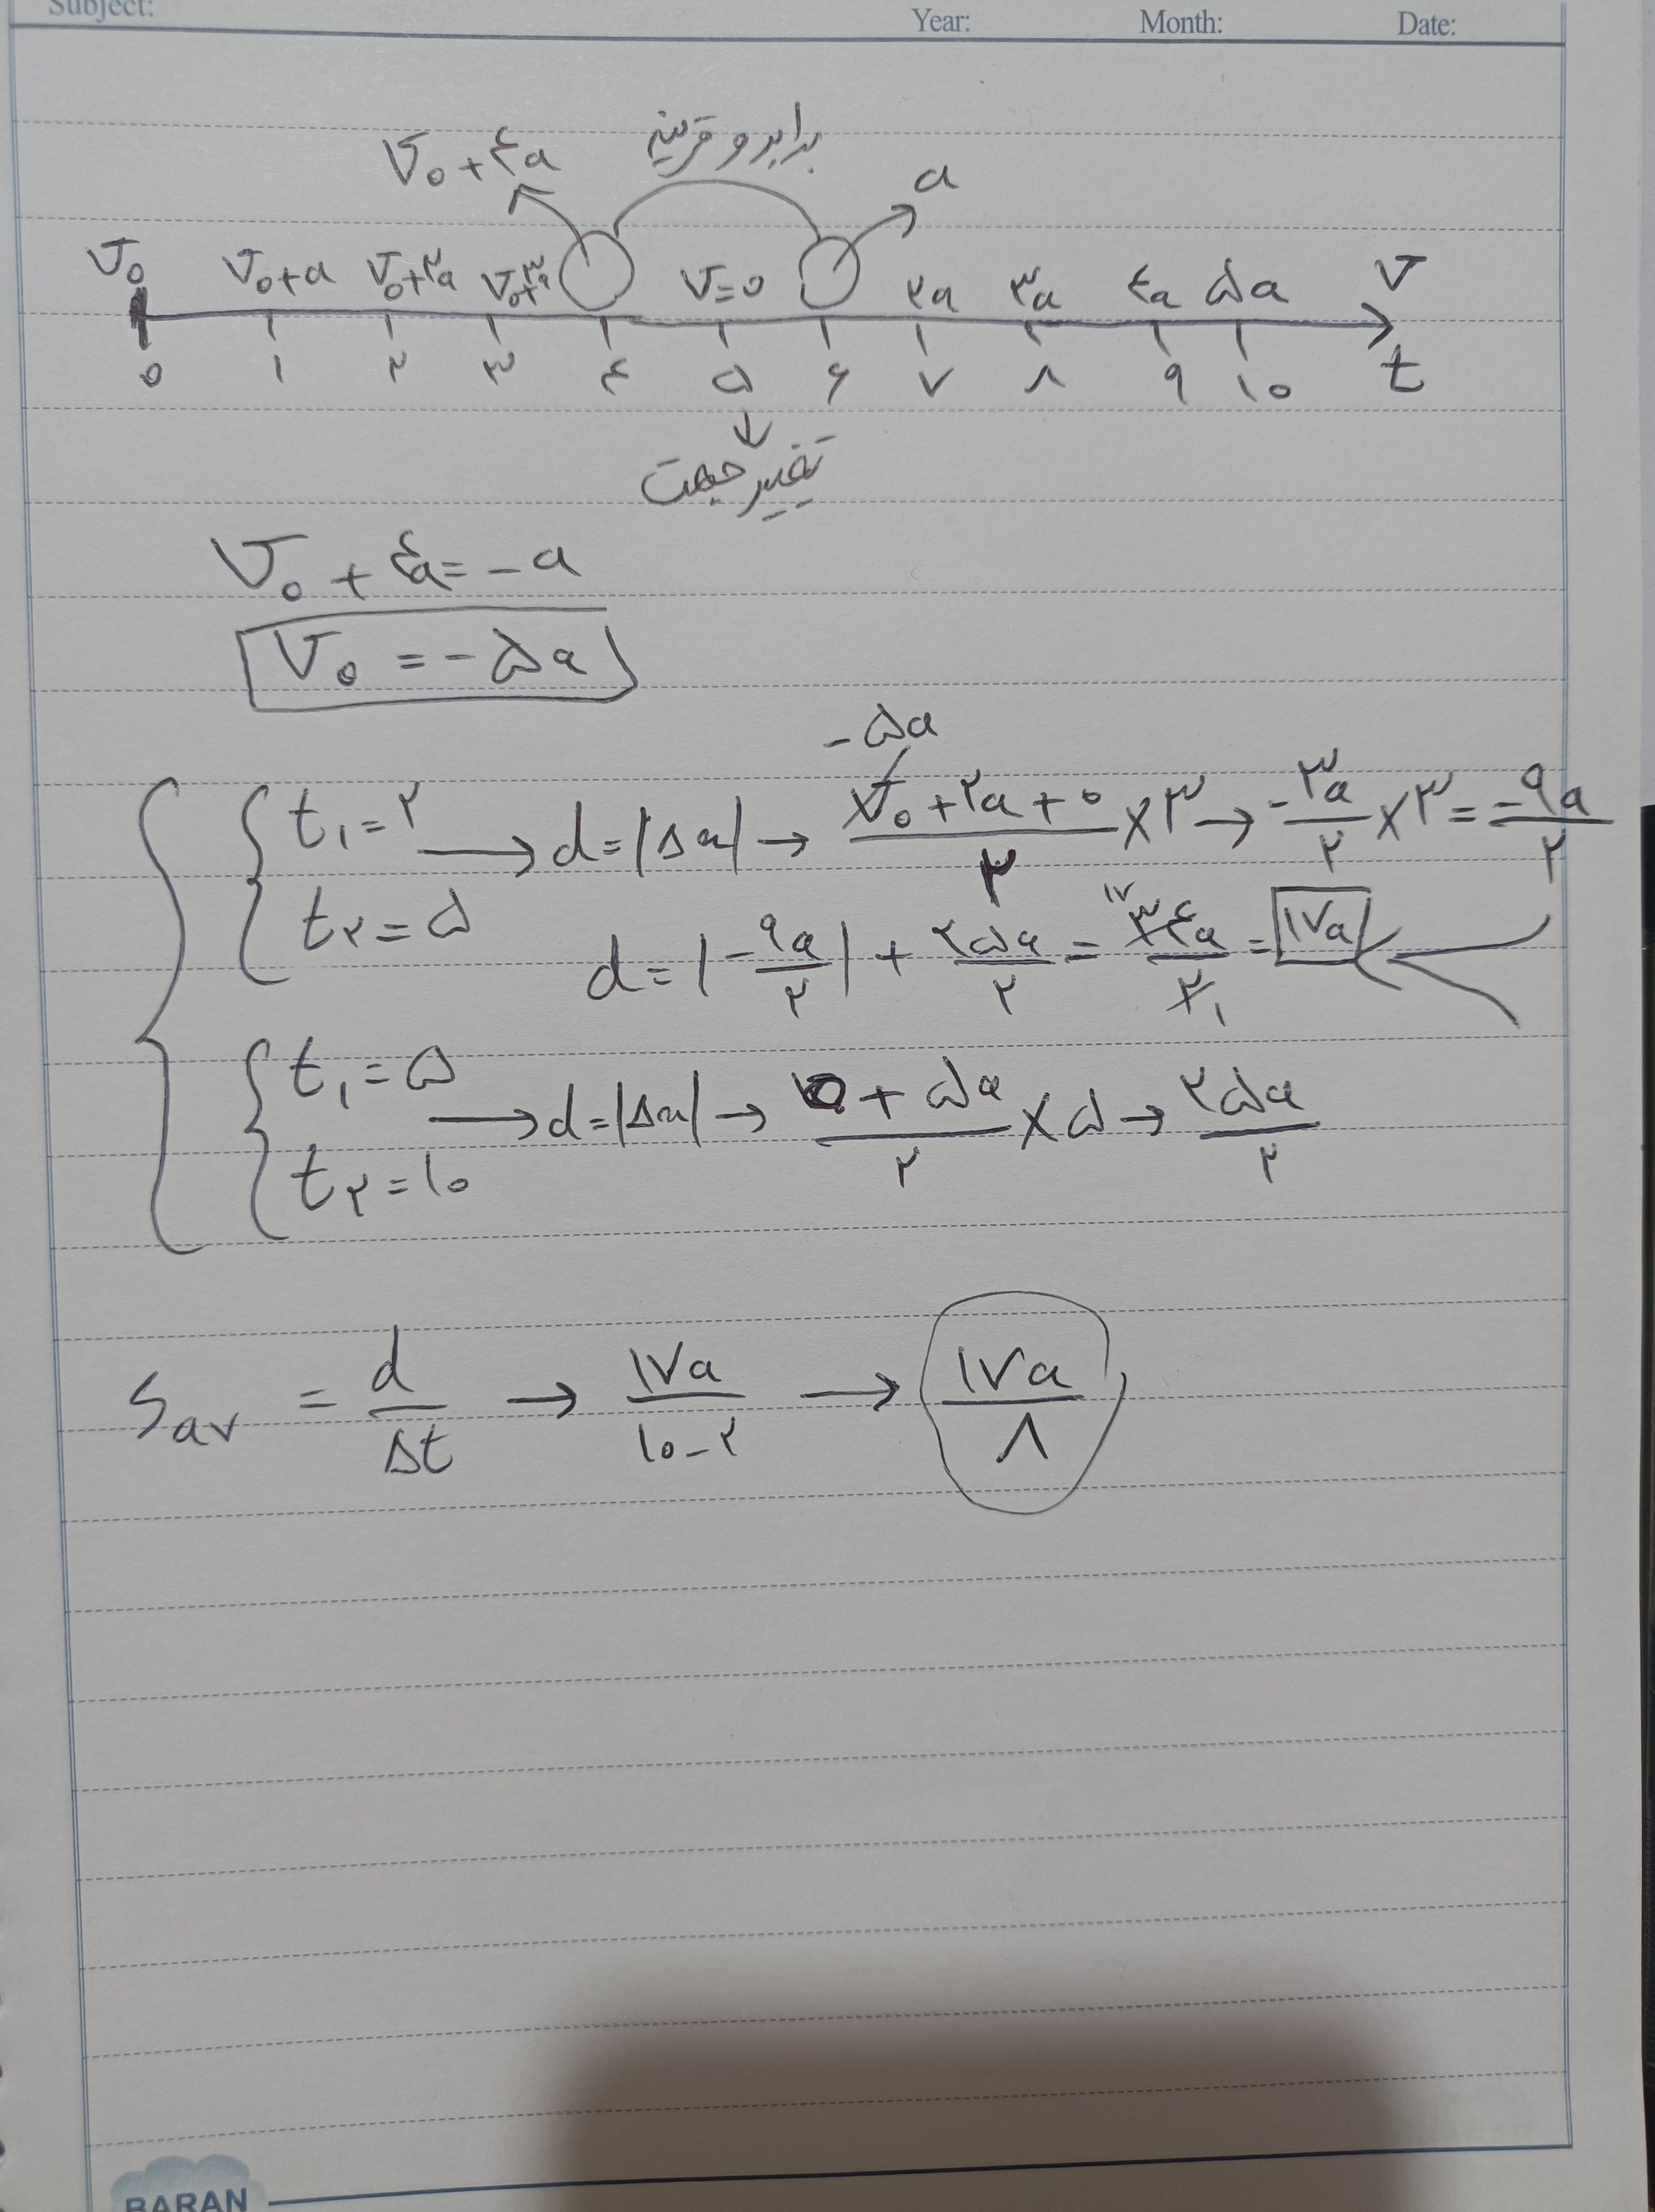 Subject: Year: Month: Date:
V₀+۴a برابر و قرینه a
V₀ V₀+a V₀+۲a V₀+۳a V=0 ۲a ۳a ۴a ۵a V
۰ ۱ ۲ ۳ ۴ ۵ ۶ ۷ ۸ ۹ ۱۰ t
تغییر جهت
V₀ + ۴a = -a
V₀ = -۵a
-۵a
t₁ = ۲ → d = |Δx| → (V₀ + ۲a + ۰)/۲ × ۳ → -۳a/۲ × ۳ = -۹a/۲
t۲ = ۵
d = |-۹a/۲| + ۲۵a/۲ = ۳۴a/۲ = ۱۷a
۱۷ ۱
t₁ = ۵ → d = |Δx| → (۰ + ۵a)/۲ × ۵ → ۲۵a/۲
t۲ = ۱۰
Sav = d/Δt → ۱۷a/(۱۰-۲) → ۱۷a/۸
BARAN